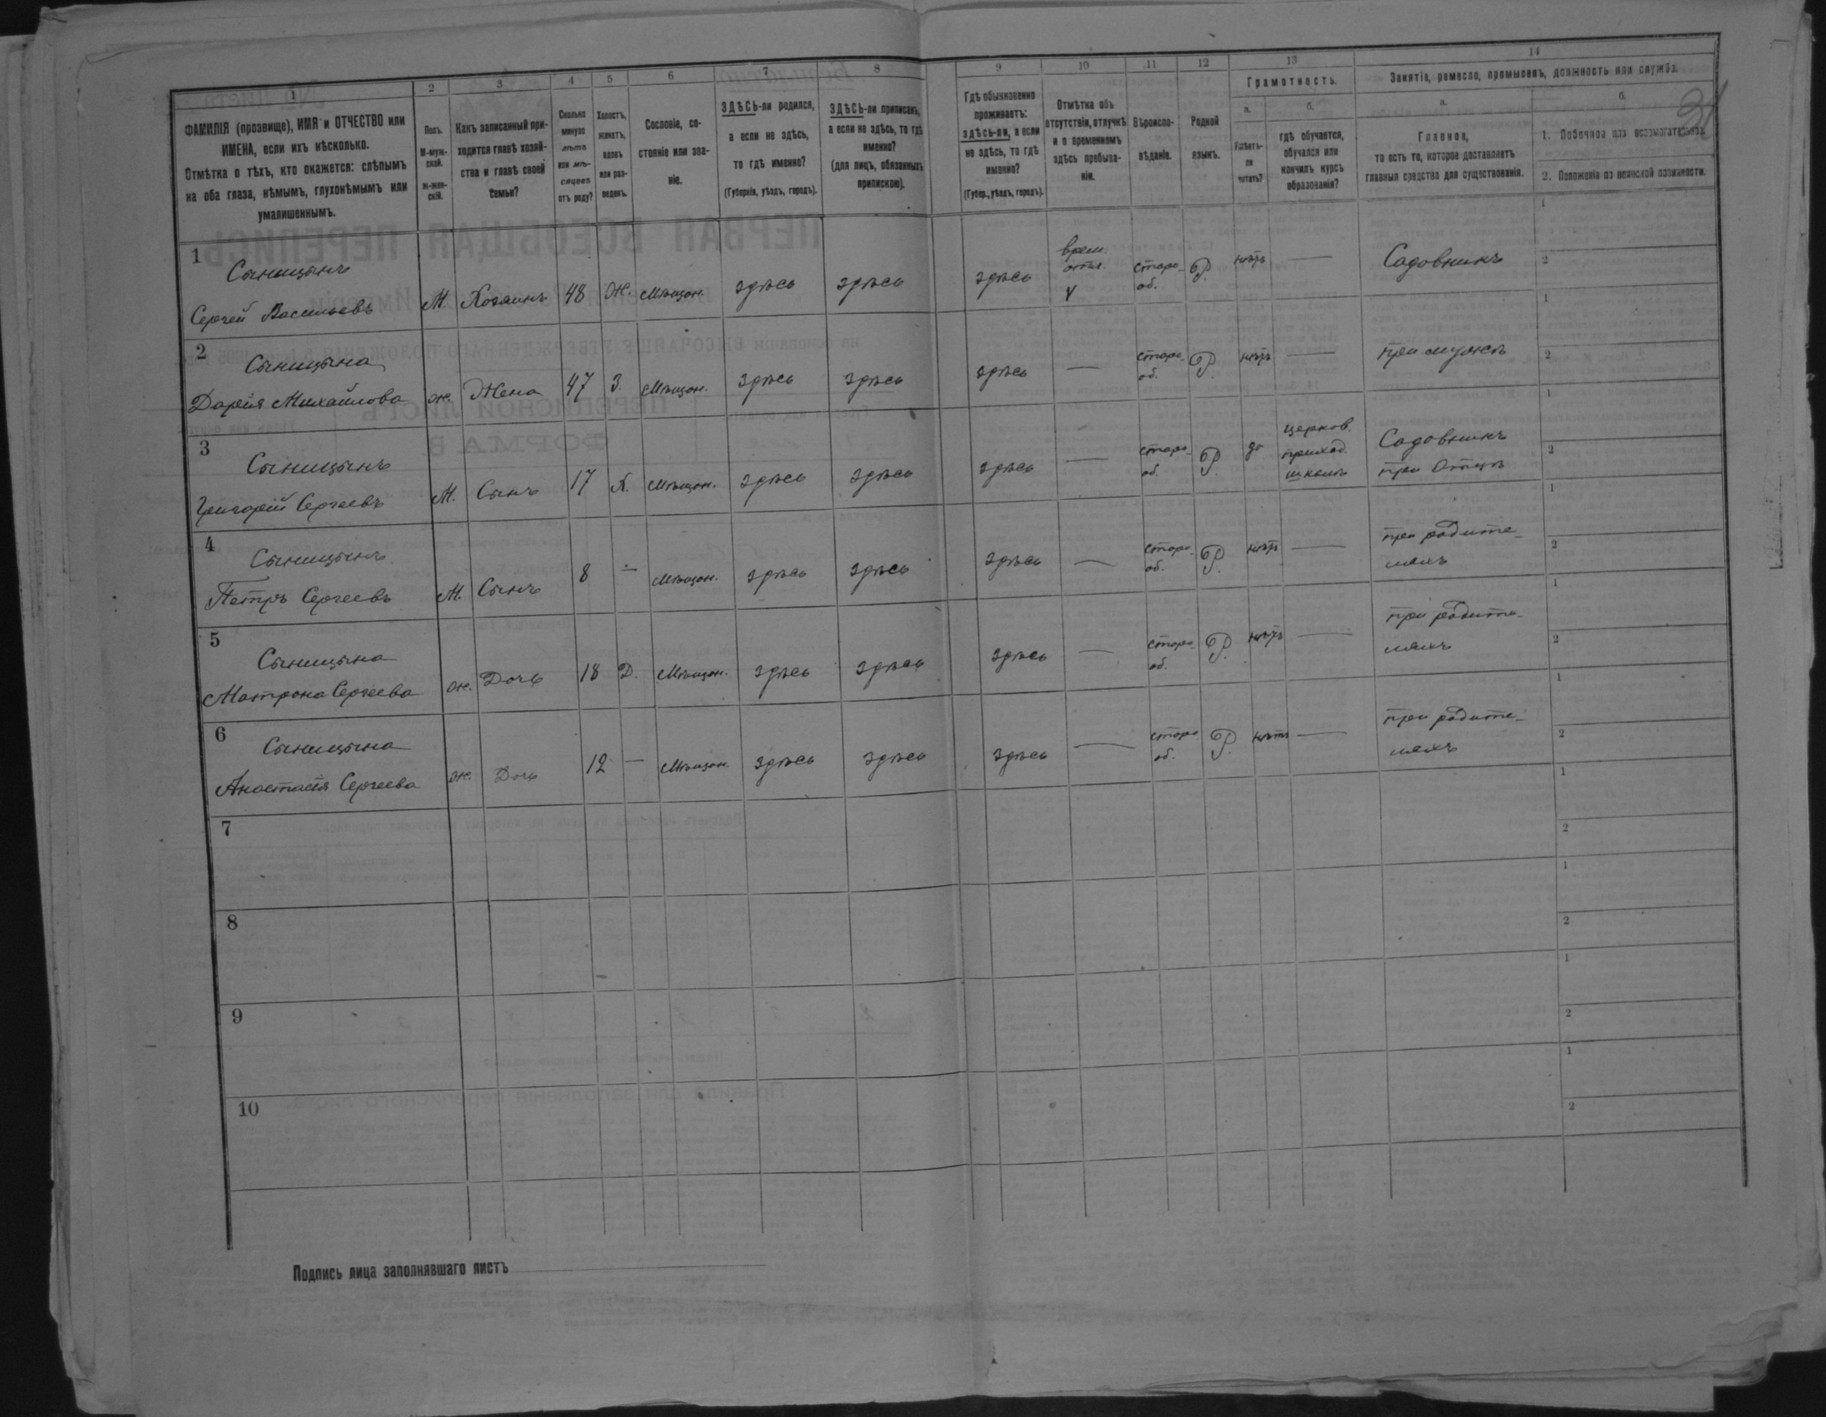 1 2 3 4 5 6 7 8 9 10 11 12 13 14
ФАМИЛІЯ (прозвище), ИМЯ и ОТЧЕСТВО или
ИМЕНА, если ихъ нѣсколько.
Отмѣтка о тѣхъ, кто окажется: слѣпымъ
на оба глаза, нѣмымъ, глухонѣмымъ или
умалишеннымъ.
Полъ.
М-муж-
ской.
Ж-жен-
скій.
Какъ записанный при-
ходится главѣ хозяй-
ства и главѣ своей
семьи?
Сколько
минуло
лѣтъ
или мѣ-
сяцевъ
отъ роду?
Холостъ,
женатъ,
вдовъ
или раз-
веденъ.
Сословіе, со-
стояніе или зва-
ніе.
ЗДѢСЬ-ли родился,
а если не здѣсь,
то гдѣ именно?
(Губернія, уѣздъ, городъ).
ЗДѢСЬ-ли приписанъ,
а если не здѣсь, то гдѣ
именно?
(для лицъ, обязанныхъ
припискою).
Гдѣ обыкновенно
проживаетъ:
здѣсь-ли, а если
не здѣсь, то гдѣ
именно?
(Губер., уѣздъ, городъ).
Отмѣтка объ
отсутствіи, отлучкѣ
и о временномъ
здѣсь пребыва-
ніи.
Вѣроиспо-
вѣданіе.
Родной
языкъ.
Грамотность.
а.
Умѣетъ-
ли
читать?
б.
гдѣ обучается,
обучался или
кончилъ курсъ
образованія?
Занятіе, ремесло, промыселъ, должность или служба.
а.
Главное,
то есть то, которое доставляетъ
главныя средства для существованія.
б.
1. Побочное или вспомогательное.
2. Положеніе по воинской повинности.
1 Сыницынъ
Сергей Васильевъ М. Хозяинъ 48 Ж. Мѣщан. здѣсь здѣсь здѣсь врем. отл. старо-об. Р. нѣтъ — Садовникъ
1
2
2 Сыницына
Дарія Михайлова ж. Жена 47 З. Мѣщан. здѣсь здѣсь здѣсь — старо-об. Р. нѣтъ — при мужѣ
1
2
3 Сыницынъ
Григорій Сергеевъ М. Сынъ 17 Х. Мѣщан. здѣсь здѣсь здѣсь — старо-об. Р. да церков. приход. школѣ Садовникъ
при Отцѣ
1
2
4 Сыницынъ
Петръ Сергеевъ М. Сынъ 8 — Мѣщан. здѣсь здѣсь здѣсь — старо-об. Р. нѣтъ — при родите-
ляхъ
1
2
5 Сыницына
Матрона Сергеева ж. Дочь 18 Д. Мѣщан. здѣсь здѣсь здѣсь — старо-об. Р. нѣтъ — при родите-
ляхъ
1
2
6 Сыницына
Анастасія Сергеева ж. Дочь 12 — Мѣщан. здѣсь здѣсь здѣсь — старо-об. Р. нѣтъ — при родите-
ляхъ
1
2
7
1
2
8
1
2
9
1
2
10
1
2
Подпись лица заполнявшаго листъ